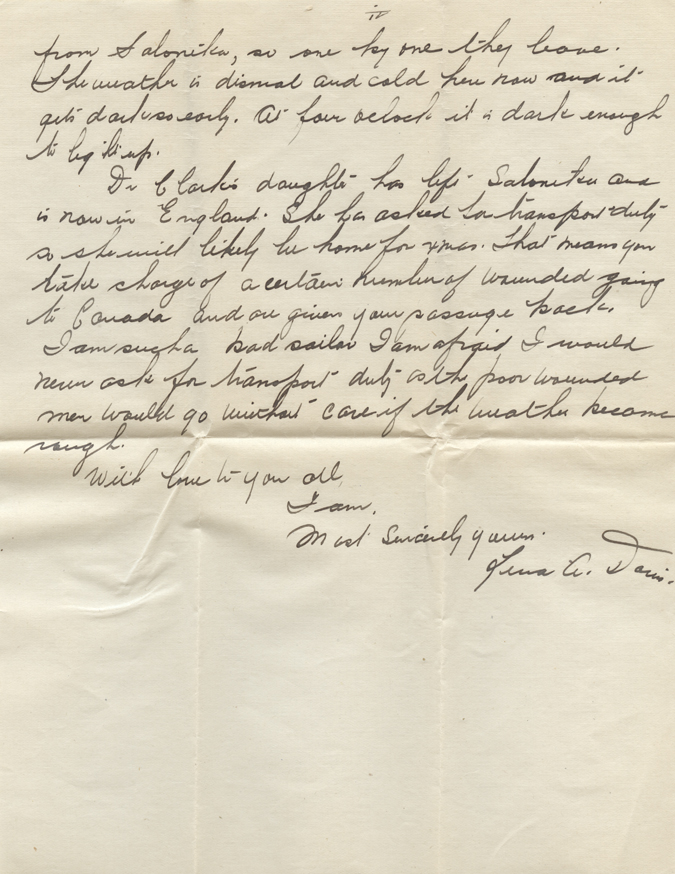 iv
from Salonika, so one by one they leave.
The weather is dismal and cold here now and it
gets dark so early. At four oclock it is dark enough
to light up.
Dr Clark's daughter has left Salonika and
is now in England. She has asked for transport duty
so she will likely be home for xmas. That means you
take charge of a certain number of wounded going
to Canada and are given your passage back.
I am such a bad sailor I am afraid I would
never ask for transport duty as the poor wounded
men would go without care if the weather became
rough.
With love to you all,
I am,
Most Sincerely yours.
Lena A. Davis.